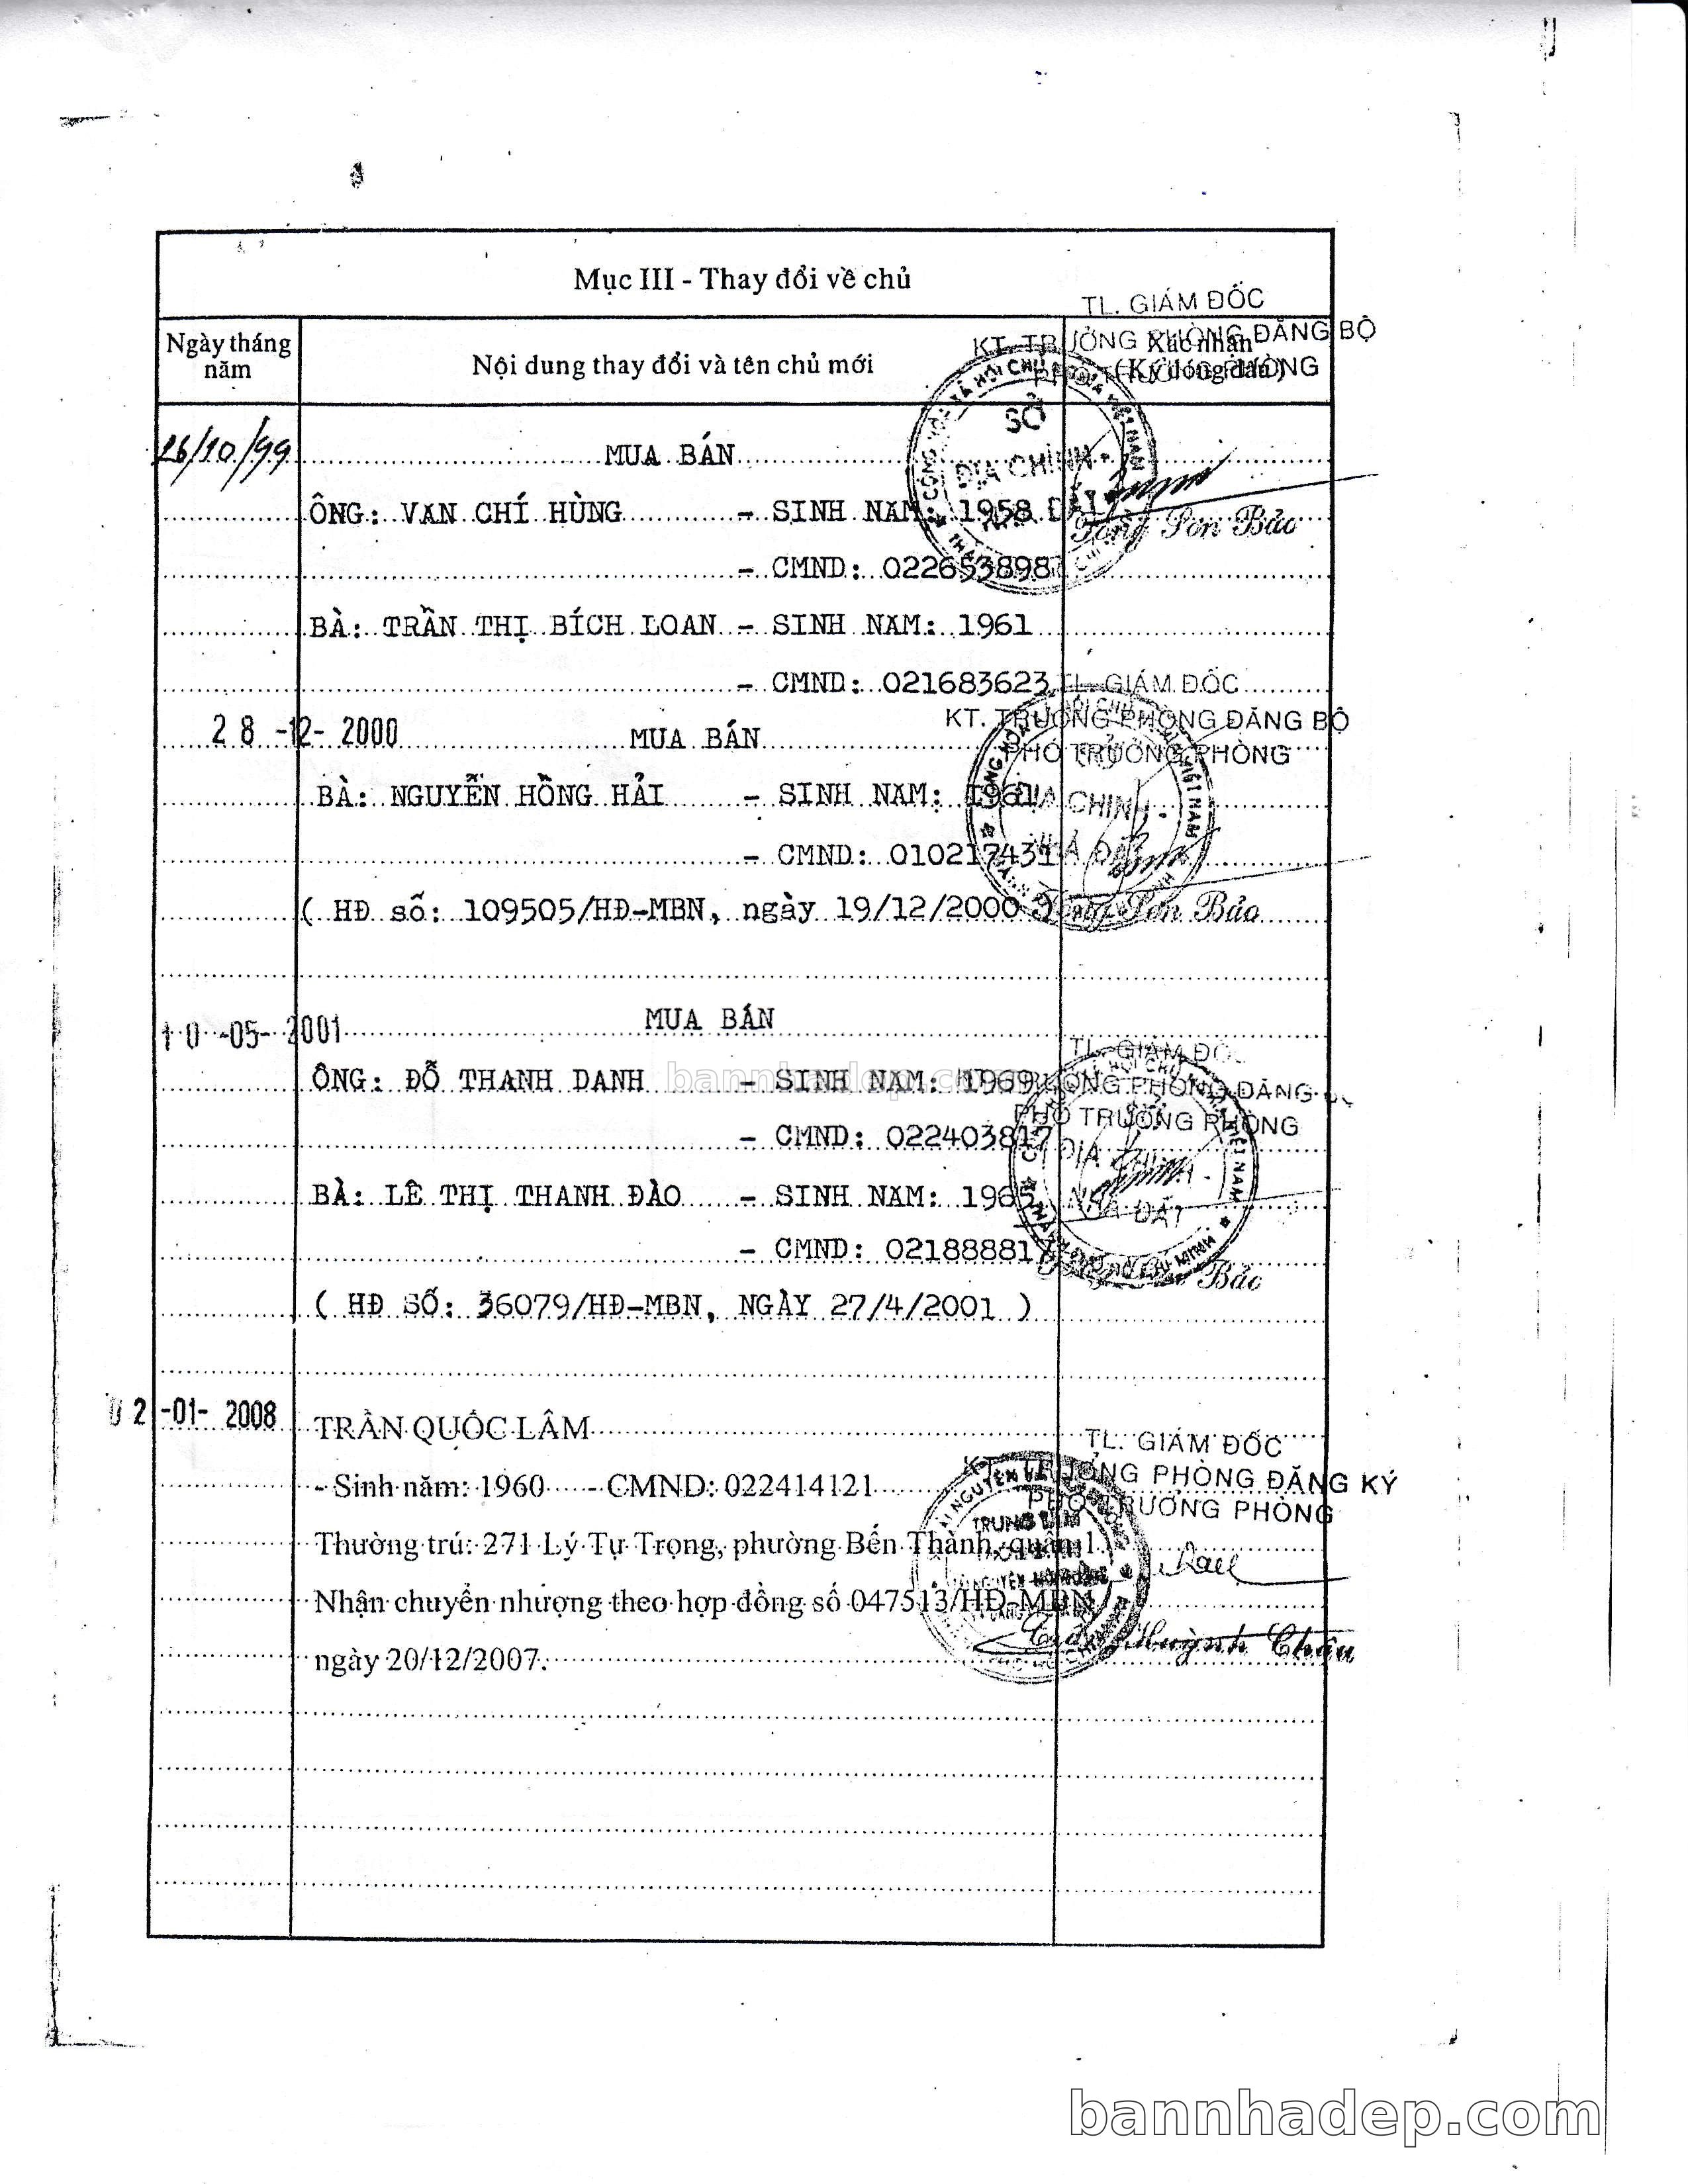 Mục III - Thay đổi về chủ
TL. GIÁM ĐỐC
KT. TRƯỞNG PHÒNG ĐĂNG BỘ
PHÓ TRƯỞNG PHÒNG
Ngày tháng năm
Nội dung thay đổi và tên chủ mới
Xác nhận
(Ký đóng dấu)
SỞ
ĐỊA CHÍNH
26/10/99
MUA BÁN
ÔNG: VAN CHÍ HÙNG - SINH NAM: 1958
Tống Sơn Bảo
- CMND: 022653898
BÀ: TRẦN THỊ BÍCH LOAN - SINH NAM: 1961
- CMND: 021683623
TL. GIÁM ĐỐC
KT. TRƯỞNG PHÒNG ĐĂNG BỘ
PHÓ TRƯỞNG PHÒNG
28-12-2000
MUA BÁN
BÀ: NGUYỄN HỒNG HẢI - SINH NAM: 1961
- CMND: 010217431
( HĐ số: 109505/HĐ-MBN, ngày 19/12/2000
Sơn Bảo
10-05-2001
MUA BÁN
TL. GIÁM ĐỐC
ÔNG: ĐỖ THANH DANH - SINH NAM: 1969
TRƯỞNG PHÒNG ĐĂNG
PHÓ TRƯỞNG PHÒNG
- CMND: 022403817
BÀ: LÊ THỊ THANH ĐÀO - SINH NAM: 1965
NHÀ ĐẤT
- CMND: 021888817
Bảo
( HĐ SỐ: 36079/HĐ-MBN, NGÀY 27/4/2001 )
02-01-2008
TRẦN QUỐC LÂM
TL. GIÁM ĐỐC
KT. TRƯỞNG PHÒNG ĐĂNG KÝ
PHÓ TRƯỞNG PHÒNG
- Sinh năm: 1960 - CMND: 022414121
Thường trú: 271 Lý Tự Trọng, phường Bến Thành, quận 1.
Nhận chuyển nhượng theo hợp đồng số 047513/HĐ-MBN
ngày 20/12/2007.
Huỳnh Châu
bannhadep.com
bannhadep.com